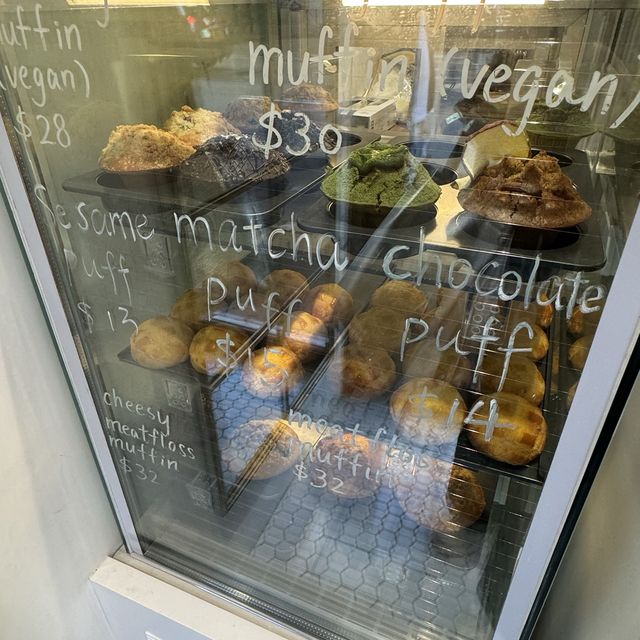 muffin
(vegan)
$28
muffin (vegan)
$30
Sesame
puff
$13
matcha
puff
$15
chocolate
puff
$14
cheesy
meatfloss
muffin
$32
meat floss
muffin
$32